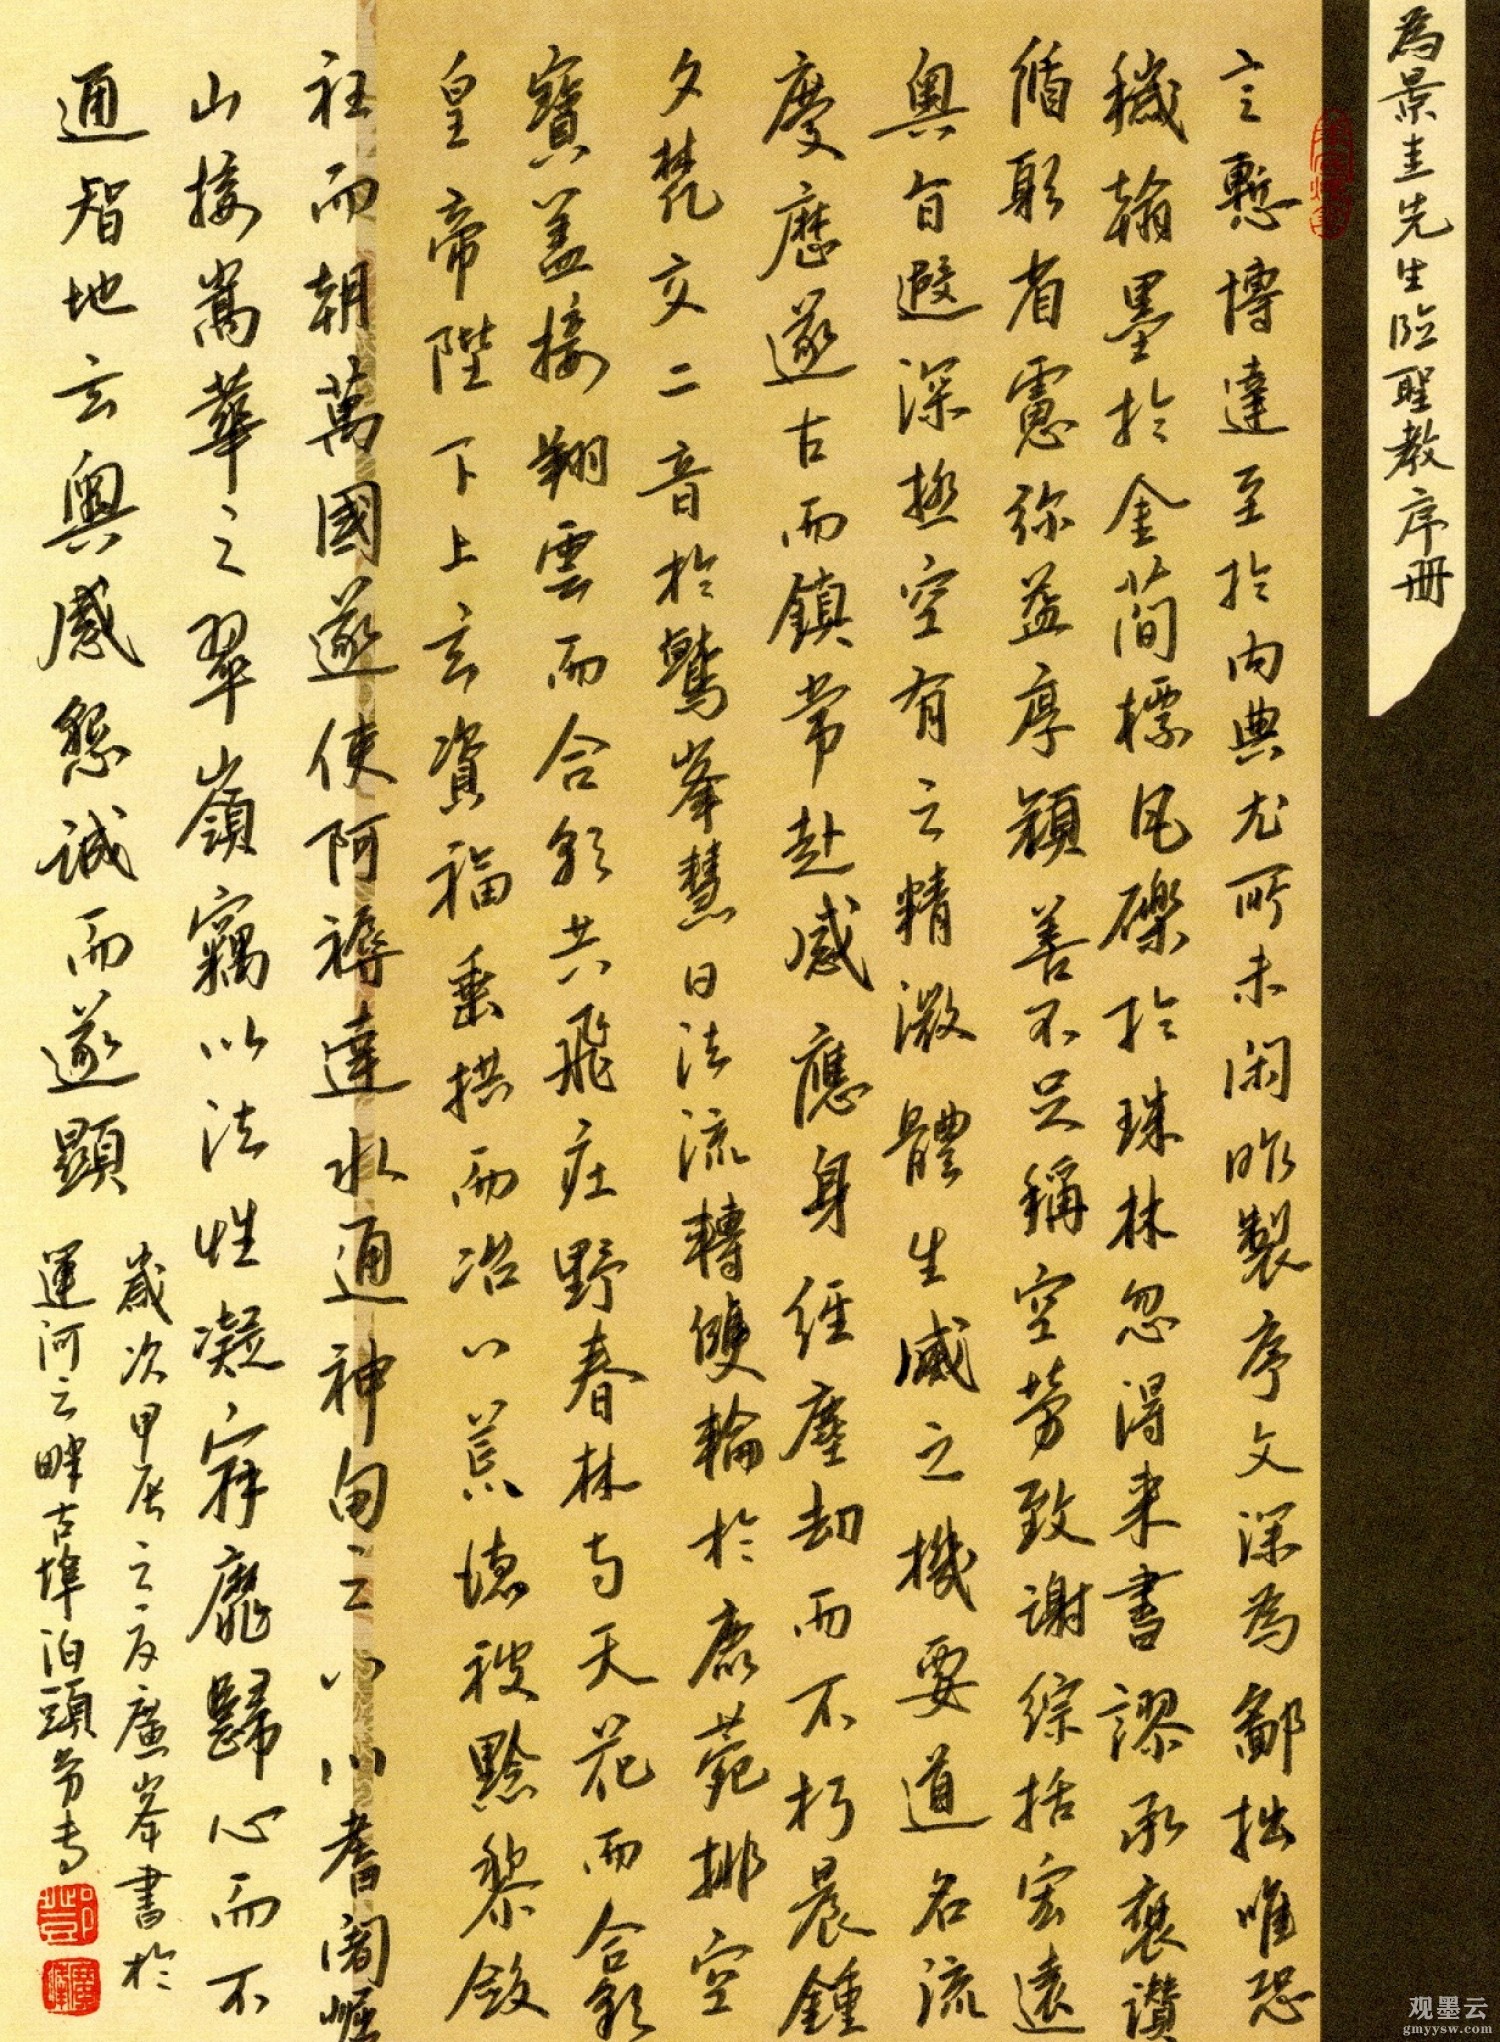 為景圭先生臨聖教序冊
言慙博達至於內典尤所未閑昨製序文深為鄙拙唯恐
穢翰墨於金簡標瓦礫於珠林忽得来書謬承褒讚
循躬省慮弥益厚顏善不足稱空勞致謝綜括宏遠
奧旨遐深極空有之精微體生滅之機要道名流
慶歷遂古而鎮常赴感應身經塵劫而不朽晨鍾
夕梵交二音於鷲峯慧日法流轉雙輪於鹿菀排空
寶盖接翔雲而合彩共飛庄野春林与天花而合彩
皇帝陛下上玄資福垂拱而治八荒德被黔黎斂
衽而朝萬國遂使阿耨達水通神甸之八川耆闍崛
山接嵩華之翠嶺竊以法性凝寂靡歸心而不
通智地玄奧感懇誠而遂顯
歲次甲辰之夏廉峯書於
運河之畔古埠泊頭
观墨云
gmyysw.com